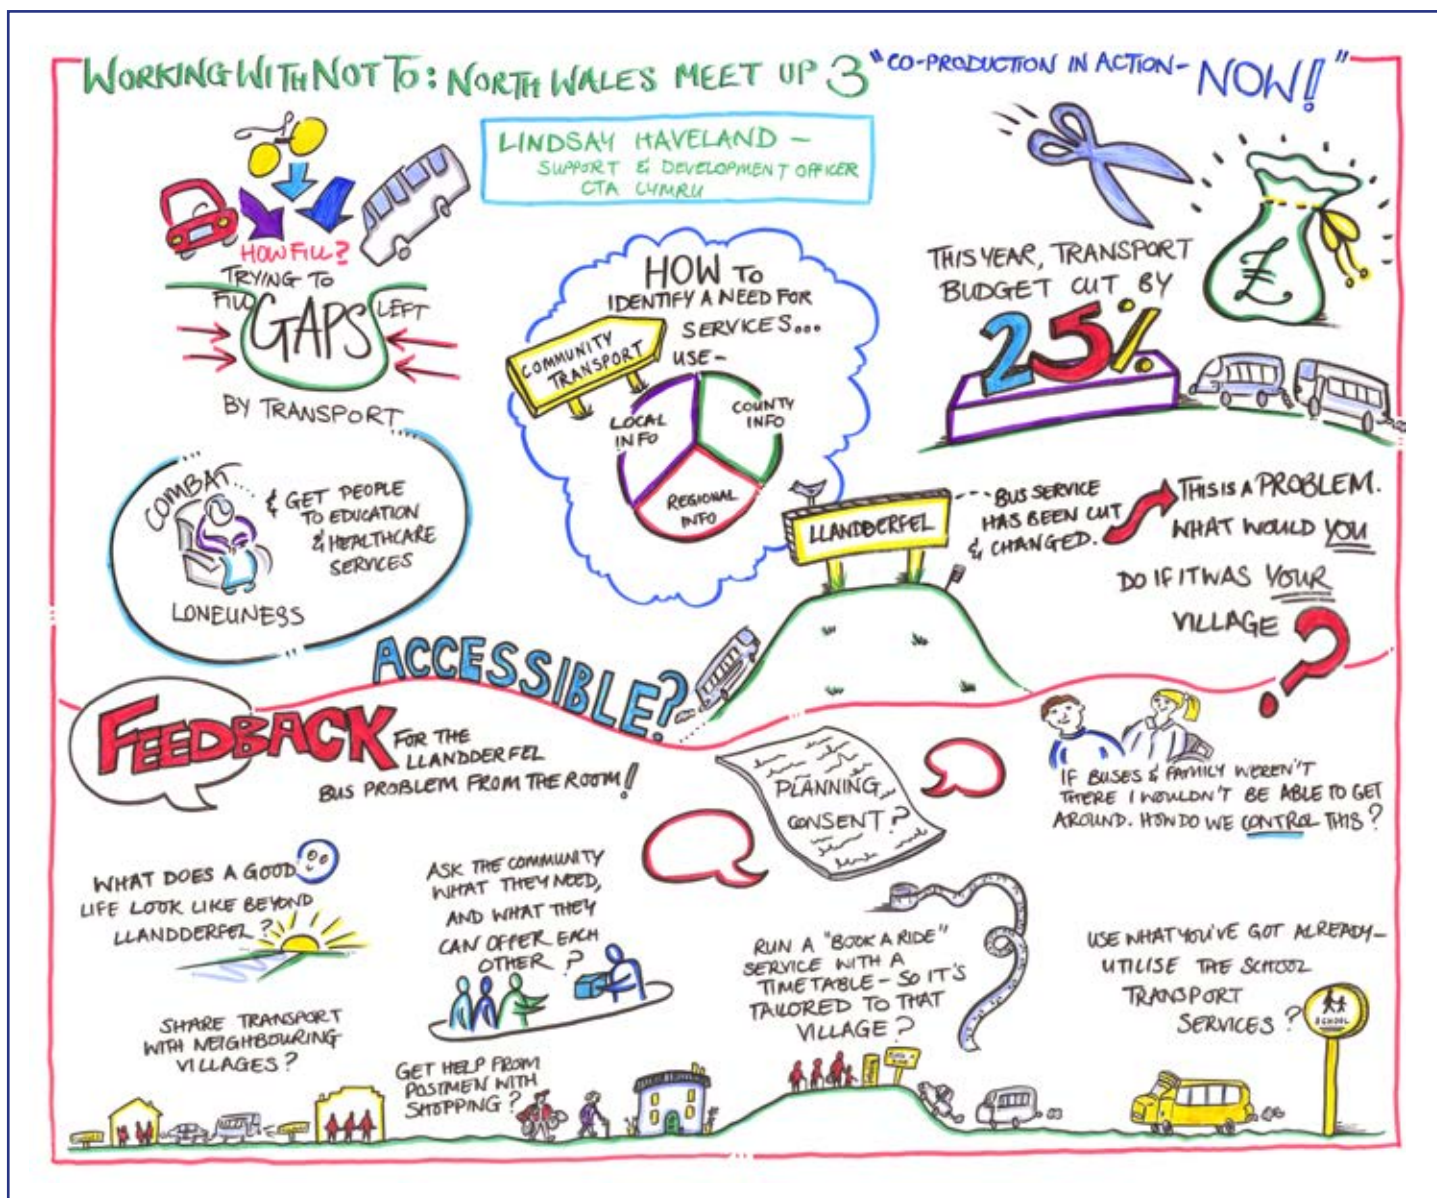 WORKING WITH NOT TO: NORTH WALES MEET UP 3 "CO-PRODUCTION IN ACTION- NOW!"
LINDSAY HAVELAND -
SUPPORT & DEVELOPMENT OFFICER
CTA CYMRU
HOW FILL?
TRYING TO
FILL GAPS LEFT
BY TRANSPORT
COMBAT...
LONELINESS
& GET PEOPLE
TO EDUCATION
& HEALTHCARE
SERVICES
HOW TO
IDENTIFY A NEED FOR
SERVICES...
USE -
COMMUNITY
TRANSPORT
LOCAL
INFO
COUNTY
INFO
REGIONAL
INFO
THIS YEAR, TRANSPORT
BUDGET CUT BY
25%
£
LLANDDERFEL
BUS SERVICE
HAS BEEN CUT
& CHANGED.
THIS IS A PROBLEM.
WHAT WOULD YOU
DO IF IT WAS YOUR
VILLAGE ?
ACCESSIBLE?
FEEDBACK FOR THE
LLANDDERFEL
BUS PROBLEM FROM THE ROOM!
PLANNING
CONSENT?
IF BUSES & FAMILY WEREN'T
THERE I WOULDN'T BE ABLE TO GET
AROUND. HOW DO WE CONTROL THIS?
WHAT DOES A GOOD
LIFE LOOK LIKE BEYOND
LLANDDERFEL?
ASK THE COMMUNITY
WHAT THEY NEED,
AND WHAT THEY
CAN OFFER EACH
OTHER?
RUN A "BOOK A RIDE"
SERVICE WITH A
TIMETABLE - SO IT'S
TAILORED TO THAT
VILLAGE?
USE WHAT YOU'VE GOT ALREADY-
UTILISE THE SCHOOL
TRANSPORT
SERVICES?
SCHOOL
SHARE TRANSPORT
WITH NEIGHBOURING
VILLAGES?
GET HELP FROM
POSTMEN WITH
SHOPPING?